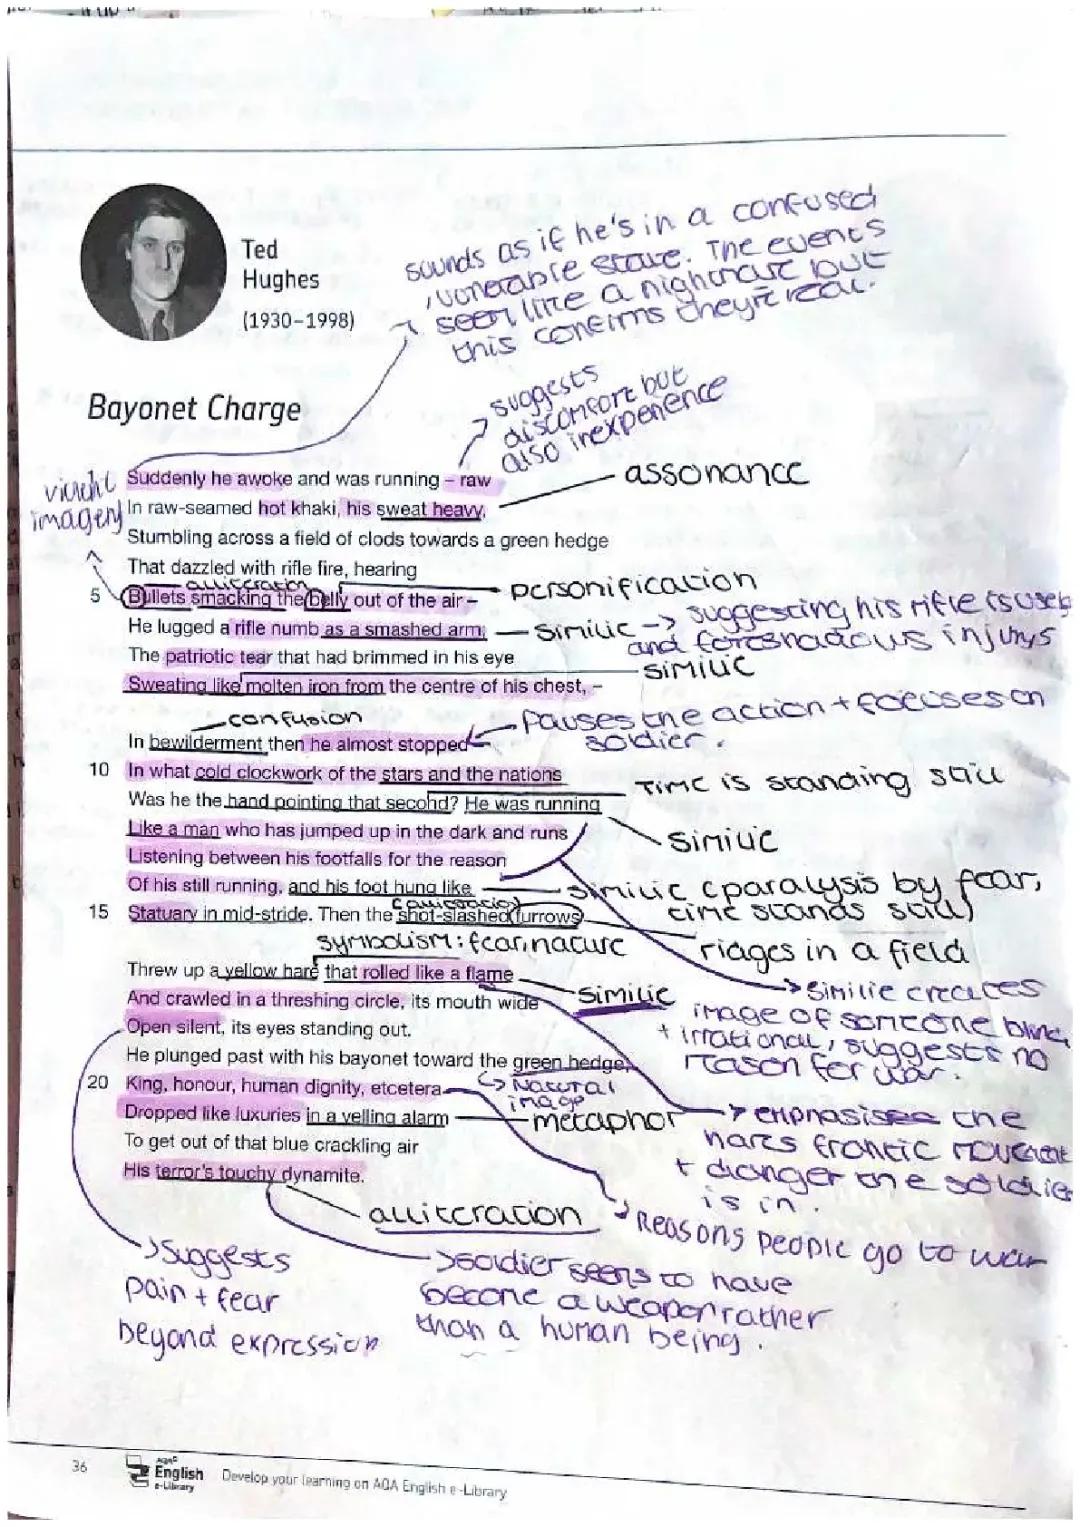 Ted
Hughes
(1930-1998)
sounds as if he's in a confused
, vunerable state. The events
seem like a nightmare but
this confirms they're real.
Bayonet Charge
suggests
discomfort but
also inexperience
violent
imagery
assonance
Suddenly he awoke and was running – raw
In raw-seamed hot khaki, his sweat heavy,
Stumbling across a field of clods towards a green hedge
That dazzled with rifle fire, hearing
alliteration
personification
5 Bullets smacking the belly out of the air –
He lugged a rifle numb as a smashed arm;
similie -> suggesting his rifle is
and foreshadows injurys
The patriotic tear that had brimmed in his eye
similie
Sweating like molten iron from the centre of his chest, –
confusion
pauses the action + focuses on
soldier.
In bewilderment then he almost stopped –
10 In what cold clockwork of the stars and the nations
Time is standing still
Was he the hand pointing that second? He was running
Like a man who has jumped up in the dark and runs
similie
Listening between his footfalls for the reason
Of his still running, and his foot hung like
similie (paralysis by fear,
time stands still)
15 Statuary in mid-stride. Then the shot-slashed furrows
symbolism: fear, nature
ridges in a field
Threw up a yellow hare that rolled like a flame
similie
And crawled in a threshing circle, its mouth wide
similie creates
image of someone blind
+ irrational, suggests no
reason for war.
Open silent, its eyes standing out.
He plunged past with his bayonet toward the green hedge,
20 King, honour, human dignity, etcetera
Natural
image
Dropped like luxuries in a yelling alarm
metaphor
To get out of that blue crackling air
His terror's touchy dynamite.
emphasises the
hares frantic movement
+ danger the soldier
is in.
alliteration
Reasons people go to war
suggests
pain + fear
beyond expression
soldier seems to have
become a weapon rather
than a human being.
36
AQA
English
e-Library
Develop your learning on AQA English e-Library